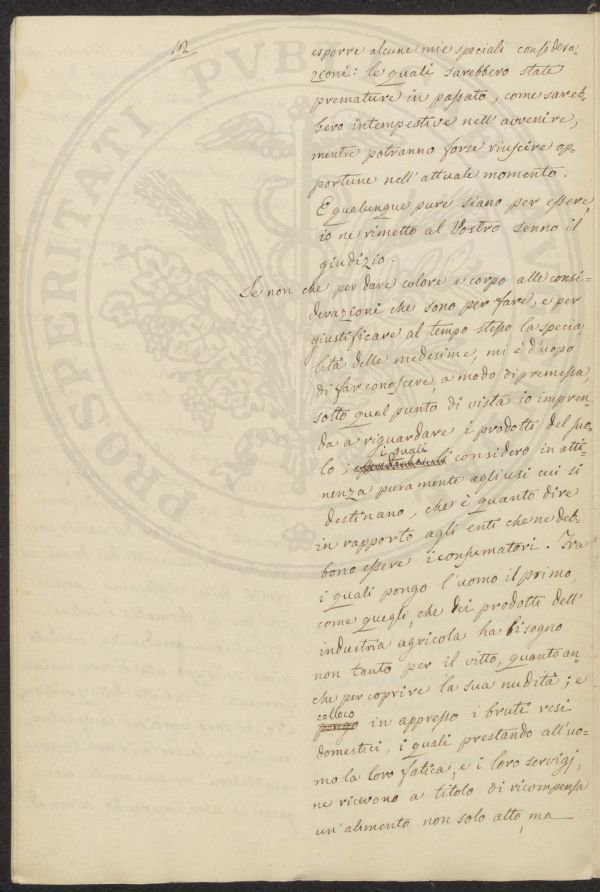 112
esporre alcune mie speciali considera-
zioni: le quali sarebbero state
premature in passato, come sareb-
bero intempestive nell'avvenire,
mentre potranno forse riuscire op-
portune nell'attuale momento.
E qualunque pure siano per essere,
io ne rimetto al Vostro senno il
giudizio.
Se non che per dare colore e corpo alle consi-
derazioni che sono per fare, e per
giustificare al tempo stesso la specia-
lità delle medesime, mi è d'uopo
di far conoscere, a modo di premessa,
sotto qual punto di vista io impren-
da a riguardare i prodotti del suo-
lo i quali considero in atti-
nenza puramente agli usi cui si
destinano, che è quanto dire
in rapporto agli enti che ne deb-
bono essere i consumatori. Tra
i quali pongo l'uomo il primo,
come quegli, che dei prodotti dell'
industria agricola ha bisogno
non tanto per il vitto, quanto an-
che per coprire la sua nudità; e
colloco
pongo in appresso i bruti resi
domestici, i quali prestando all'uo-
mo la loro fatica, e i loro servigj,
ne ricevono a titolo di ricompensa
un'alimento non solo atto, ma
PROSPERITATI PVBLICAE